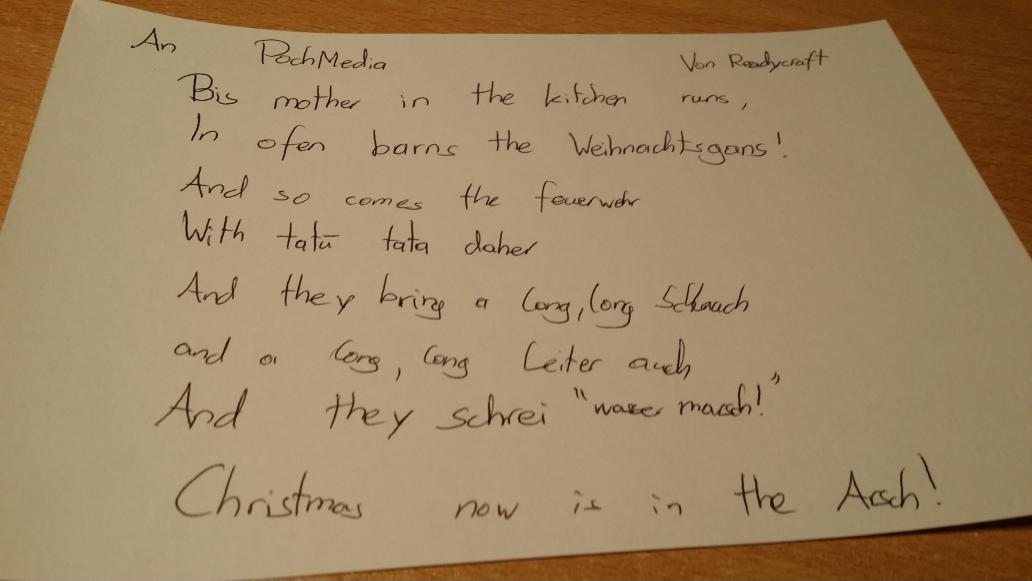 An PochMedia Von Readycraft
Bis mother in the kitchen runs,
In ofen barns the Weihnachtsgans!
And so comes the feuerwehr
With tatü tata daher
And they bring a long, long Schlauch
and a long, long Leiter auch
And they schrei "waser marsch!"
Christmas now is in the Arsch!